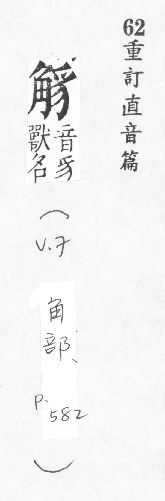 62重訂直音篇
𧣾
音豸
獸名
(
V.7
角部、
P.
582
)